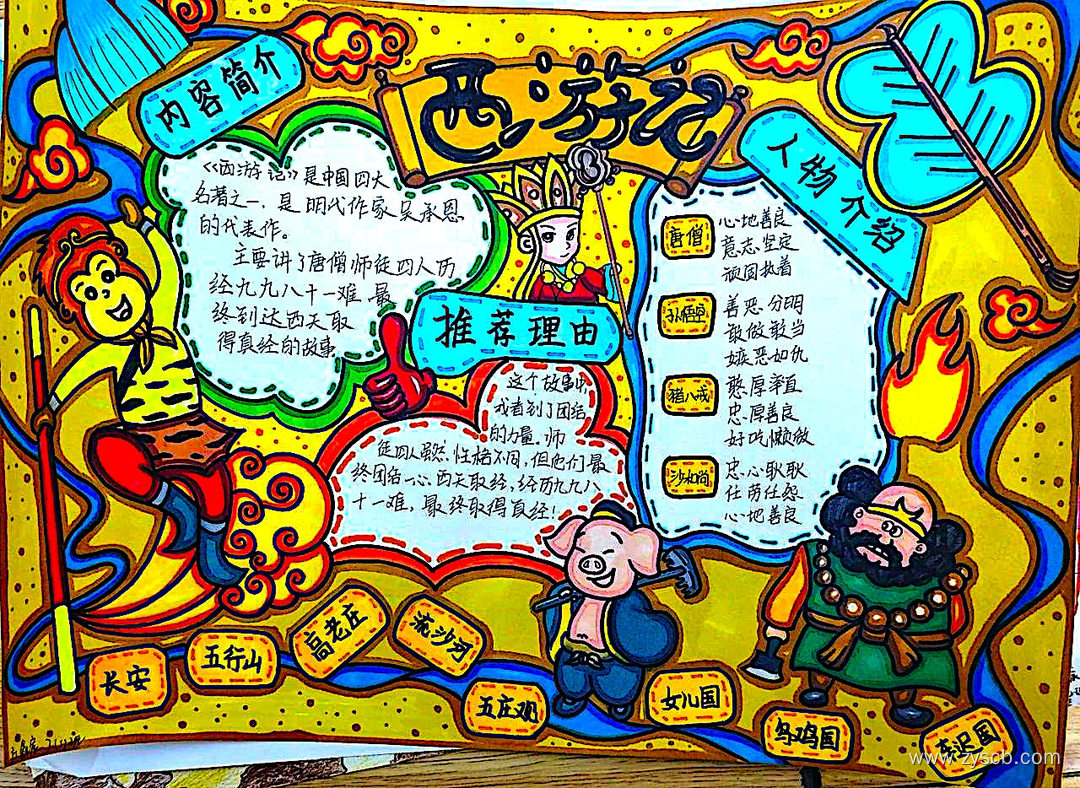 西游记
内容简介
《西游记》是中国四大
名著之一，是明代作家吴承恩
的代表作。
主要讲了唐僧师徒四人历
经九九八十一难，最
终到达西天取
得真经的故事
推荐理由
这个故事中，
我看到了团结
的力量。师
徒四人虽然性格不同，但他们最
终团结一心，西天取经，经历九九八
十一难，最终取得真经！
人物介绍
唐僧
心地善良
意志坚定
顽固执着
孙悟空
善恶分明
敢做敢当
嫉恶如仇
猪八戒
憨厚率直
忠厚善良
好吃懒做
沙和尚
忠心耿耿
任劳任怨
心地善良
长安
五行山
高老庄
流沙河
五庄观
女儿国
乌鸡国
车迟国
www.zyscb.com